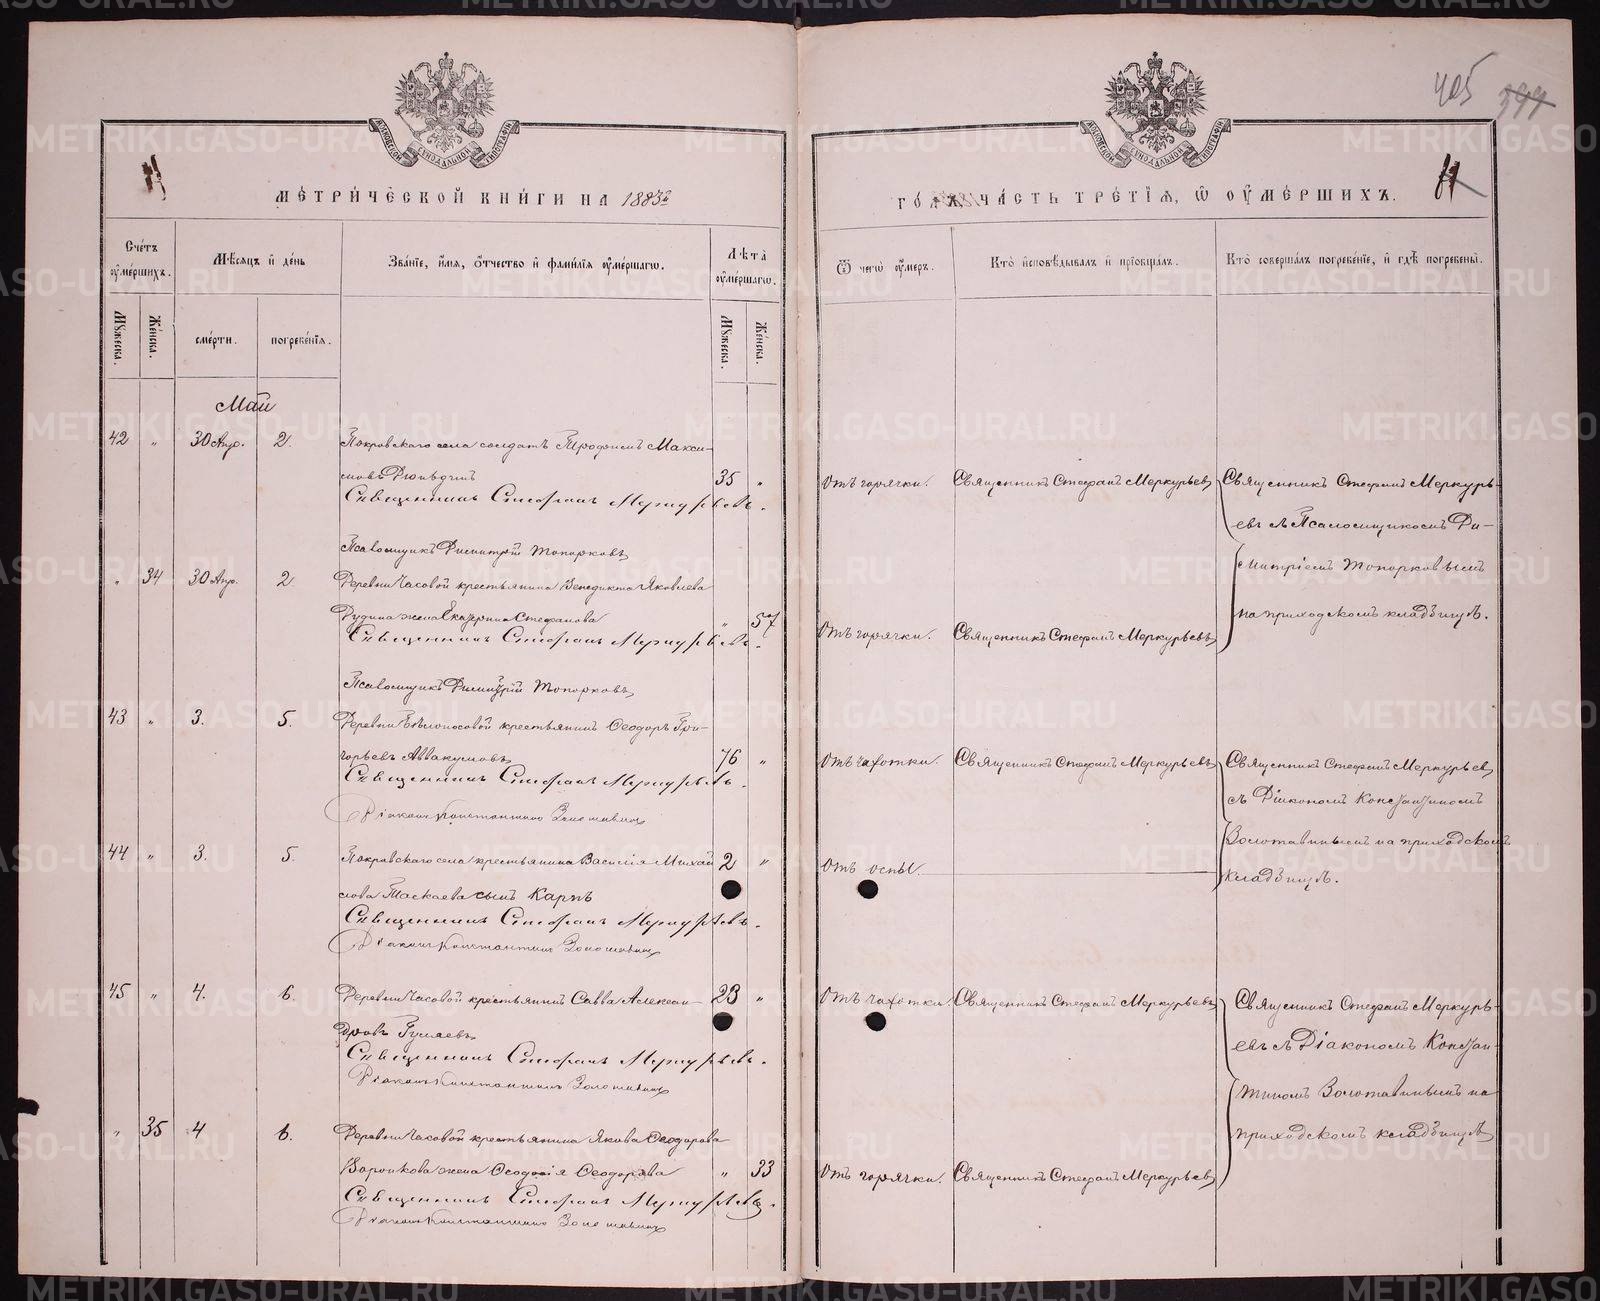 405 394
МОСКОВСКОЙ СѴНОДАЛЬНОЙ ТИПОГРАФІИ
МОСКОВСКОЙ СѴНОДАЛЬНОЙ ТИПОГРАФІИ
МЕТРИЧЕСКОЙ КНИГИ НА 1883й
ГОДЪ, ЧАСТЬ ТРЕТІЯ, Ѡ ОУМЕРШИХЪ.
Счетъ оумершихъ.
Мѣсяцъ и день
Званіе, имя, отчество и фамилія оумершагѡ.
Лѣта оумершагѡ.
Ѿ чегѡ оумеръ.
Кто исповѣдывалъ и пріобщалъ.
Кто совершалъ погребеніе, и гдѣ погребены.
Мꙋжеска.
Женска.
смерти.
погребенія.
Мꙋжеска.
Женска.
Май
42 " 30 Апр. 2. Покровскаго села солдатъ Трофимъ Макси-
мовъ 35 "
Отъ горячки. Священникъ Стефанъ Меркурьевъ
Священникъ Стефанъ Меркурь-
евъ съ Псаломщикомъ Ди-
митріемъ Топорковымъ
на приходскомъ кладбищѣ.
Священникъ Стефанъ Меркурьевъ.
Псаломщикъ Димитрій Топорковъ
" 34 30 Апр. 2 Деревни Часовой крестьянина Венедикта Яковлева
Рудина жена Екатерина Стефанова " 57
Отъ горячки. Священникъ Стефанъ Меркурьевъ
Священникъ Стефанъ Меркурьевъ.
Псаломщикъ Димитрій Топорковъ
43 " 3. 5. Деревни Бѣлоносовой крестьянинъ Ѳеодоръ Гри-
горьевъ Аввакумовъ 76 "
Отъ чахотки. Священникъ Стефанъ Меркурьевъ
Священникъ Стефанъ Меркурьевъ
съ Діакономъ Константиномъ
Золотавинымъ на приходскомъ
кладбищѣ.
Священникъ Стефанъ Меркурьевъ.
Діаконъ Константинъ Золотавинъ
44 " 3. 5. Покровскаго села крестьянина Василія Михай- 2 "
лова Таскаева сынъ Карпъ
Отъ оспы.
Священникъ Стефанъ Меркурьевъ.
Діаконъ Константинъ Золотавинъ
45 " 4. 6. Деревни Часовой крестьянинъ Савва Алексан- 23 "
дровъ Гуляевъ
Отъ чахотки. Священникъ Стефанъ Меркурьевъ
Священникъ Стефанъ Меркурь-
евъ съ Діакономъ Констан-
тиномъ Золотавинымъ на
приходскомъ кладбищѣ
Священникъ Стефанъ Меркурьевъ.
Діаконъ Константинъ Золотавинъ
" 35 4 6. Деревни Часовой крестьянина Якова Ѳеодорова
Воронкова жена Ѳеодосія Ѳеодорова " 33
Отъ горячки. Священникъ Стефанъ Меркурьевъ
Священникъ Стефанъ Меркурьевъ.
Діаконъ Константинъ Золотавинъ
METRIKI.GASO-URAL.RU